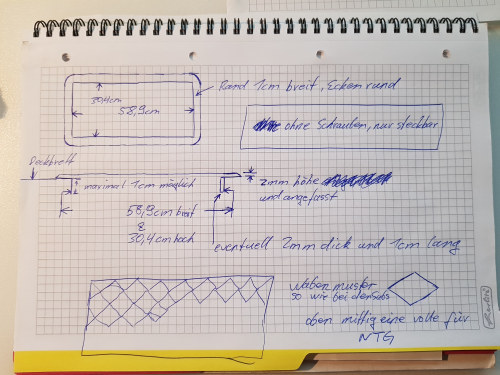 Rand 1cm breit, Ecken rund
30,4cm
58,9cm
ohne Schrauben, nur steckbar
maximal 1cm möglich
2mm höhe
und angefasst
58,9cm breit
&
30,4cm hoch
eventuell 2mm dick und 1cm lang
Wabenmuster
so wie bei
oben mittig eine volle für
NTG